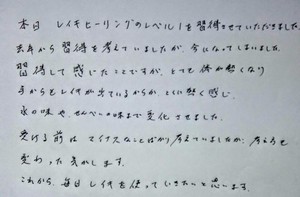 本日 レイキヒーリングのレベル1を習得させていただきました。
去年から習得を考えていましたが、今になってしまいました。
習得して感じたことですが、とても体が熱くなり
手からもレイキが出ているからか、とくに熱く感じ
水の味や、せんべいの味まで変化させました。
受ける前は マイナスなことばかり考えていましたが、考え方も
変わった気がします。
これから、毎日レイキを使っていきたいと思います。